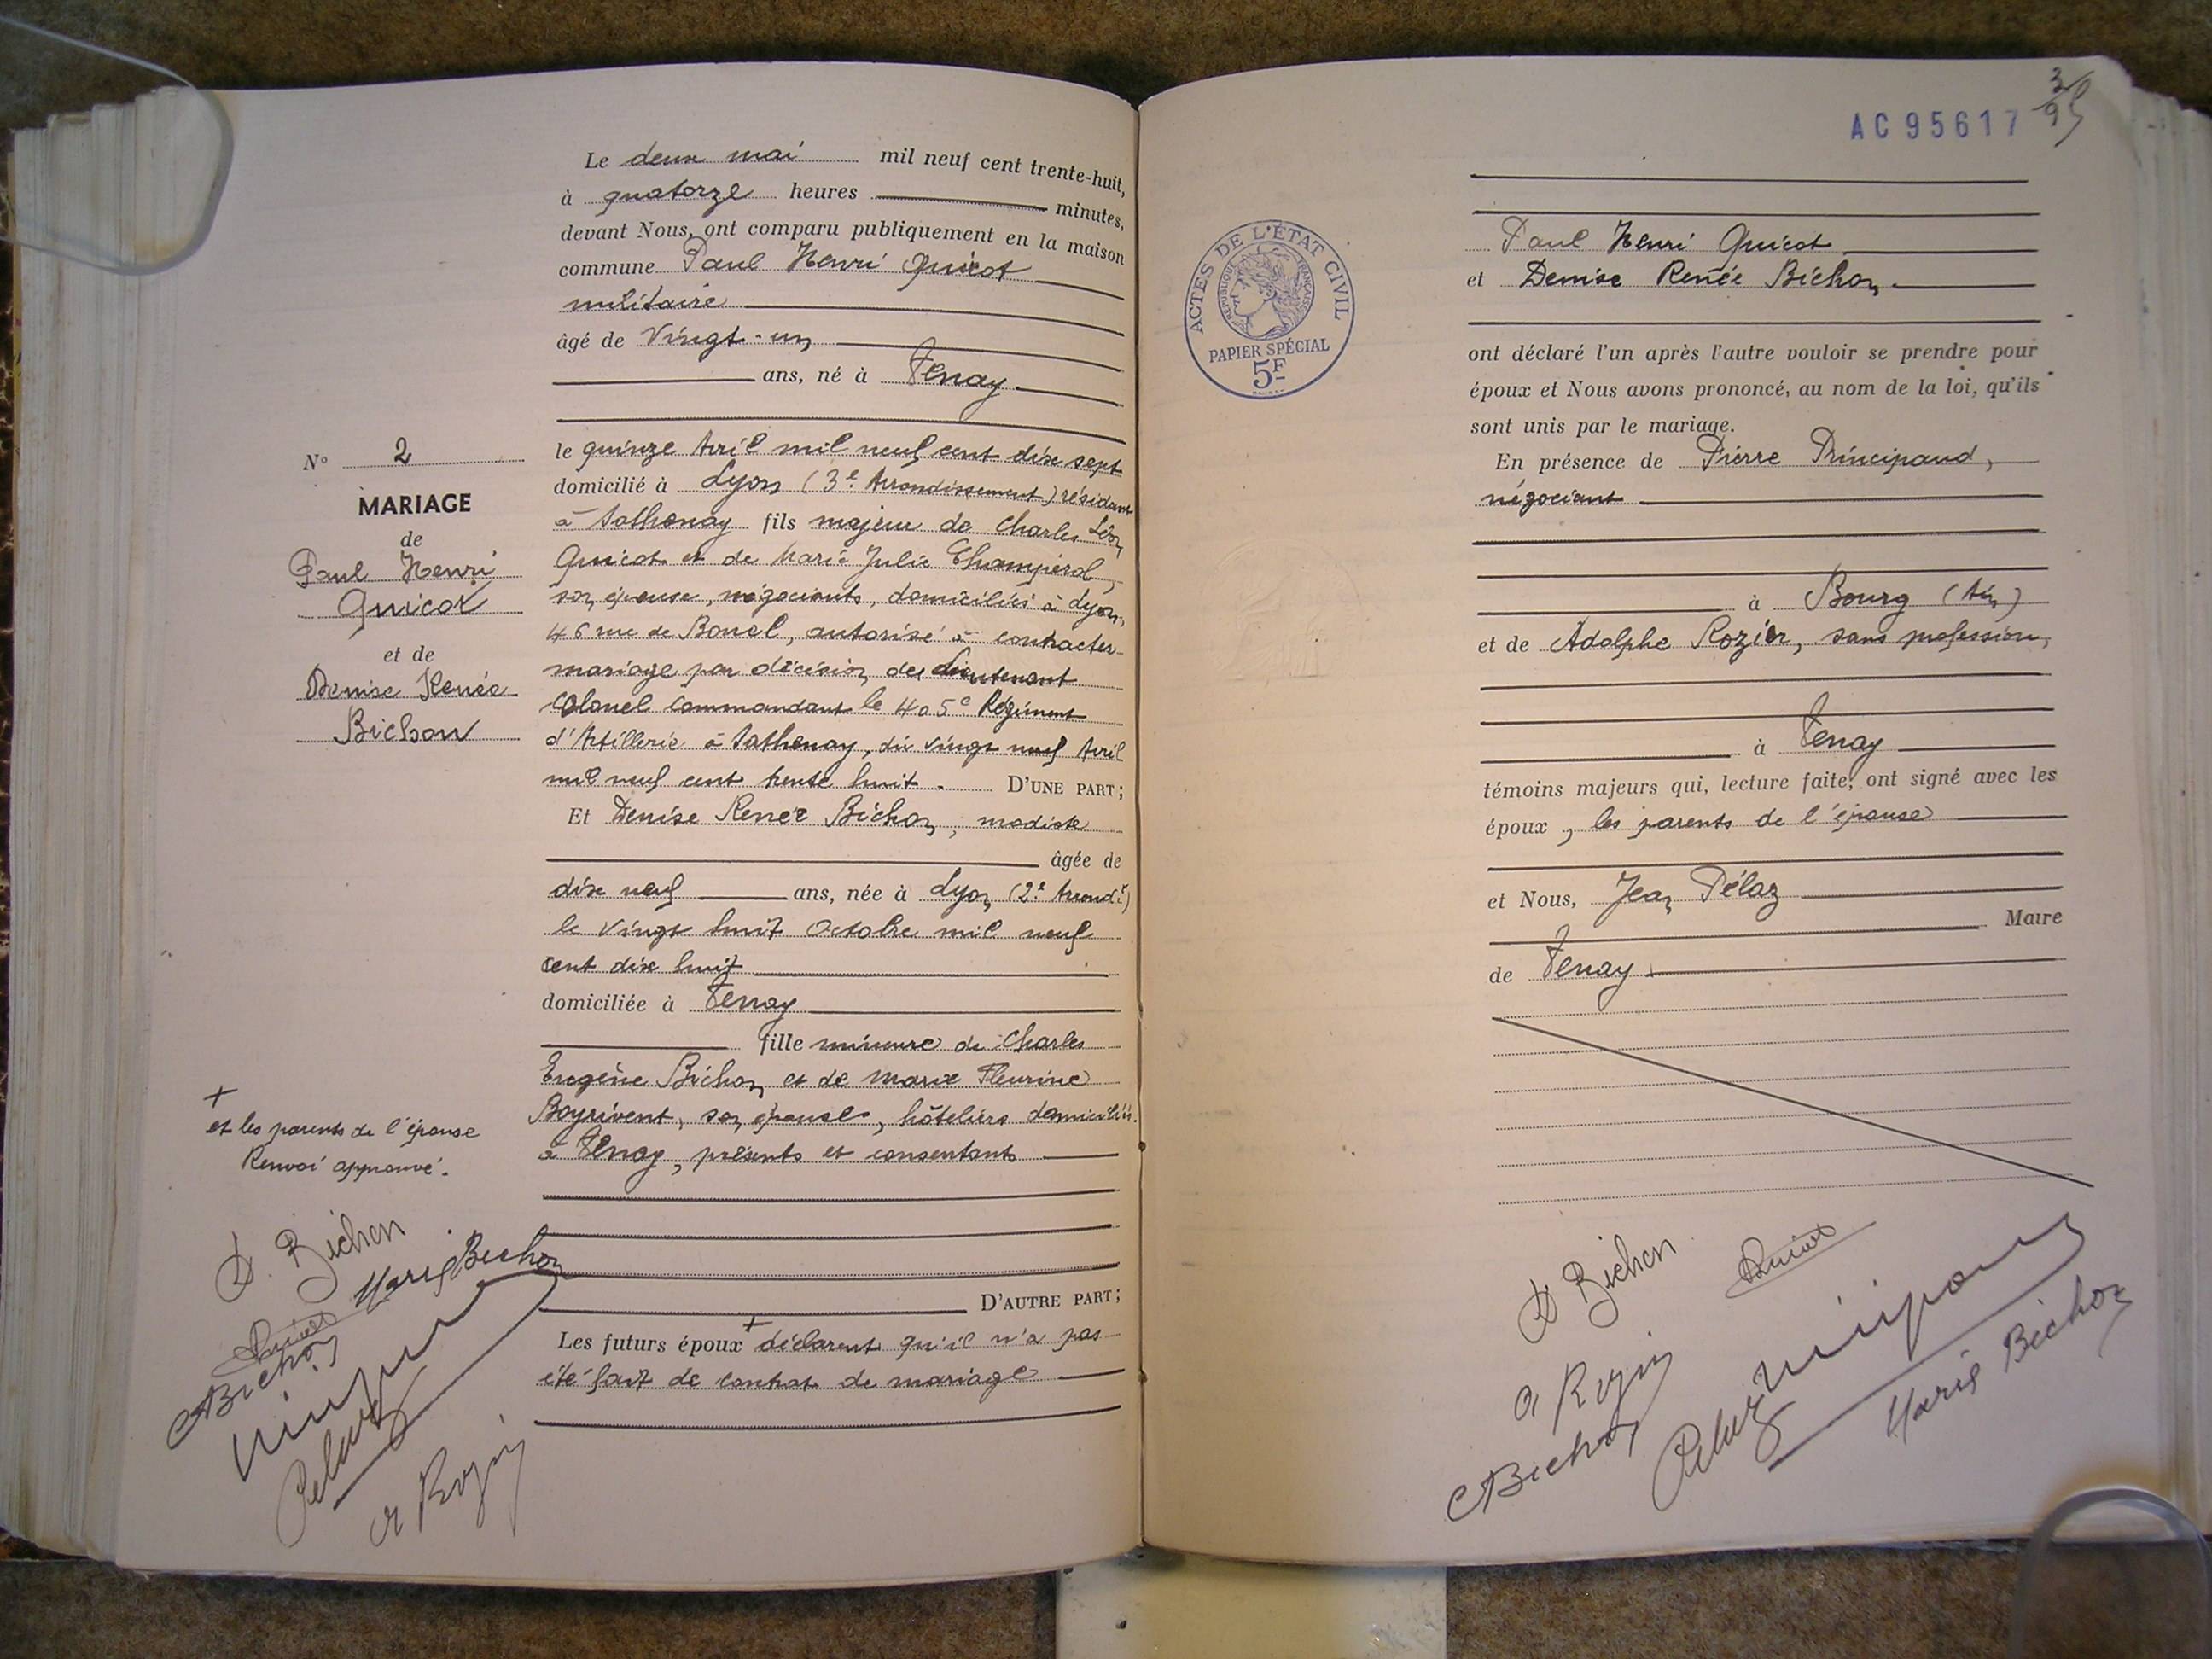 Le deux mai mil neuf cent trente-huit,
à quatorze heures minutes,
devant Nous, ont comparu publiquement en la maison
commune Paul Henri Guicot
militaire
âgé de vingt-un
ans, né à Tenay
N° 2
MARIAGE
de
Paul Henri
Guicot
et de
Denise Renée
Bichon
le quinze Avril mil neuf cent dix sept
domicilié à Lyon (3e Arrondissement) résidant
à Sathonay fils majeur de Charles Léon
Guicot et de Marie Julie
son épouse, négociants, domiciliés à Lyon,
46 rue de Bonel, autorisé à contracter
mariage par décision du Lieutenant
Colonel Commandant le 405e Régiment
d'Artillerie à Sathonay, du vingt neuf Avril
mil neuf cent trente huit. D'UNE PART;
Et Denise Renée Bichon, modiste
âgée de
dix neuf ans, née à Lyon (2e Arrondt)
le vingt huit Octobre mil neuf
cent dix huit
domiciliée à Tenay
fille mineure de Charles
Eugène Bichon et de Marie Fleurine
Boyrivent, son épouse, hôteliers domiciliés
à Tenay, présents et consentants
D'AUTRE PART;
Les futurs époux + déclarent qu'il n'a pas
été fait de contrat de mariage
+
et les parents de l'épouse
Renvoi approuvé.
D. Bichon
Marie Bichon
Guicot
Bichon
Pelaz
A Rozier
AC95617
3/95
ACTES DE L'ÉTAT CIVIL
RÉPUBLIQUE FRANÇAISE
PAPIER SPÉCIAL
5F
Paul Henri Guicot
et Denise Renée Bichon
ont déclaré l'un après l'autre vouloir se prendre pour
époux et Nous avons prononcé, au nom de la loi, qu'ils
sont unis par le mariage.
En présence de Pierre Principaud,
négociant
à Bourg (Ain)
et de Adolphe Rozier, sans profession,
à Tenay
témoins majeurs qui, lecture faite, ont signé avec les
époux, les parents de l'épouse
et Nous, Jean Pélaz
Maire
de Tenay
D Bichon
Guicot
A Rozier
Principaud
Bichon
Pelaz
Marie Bichon